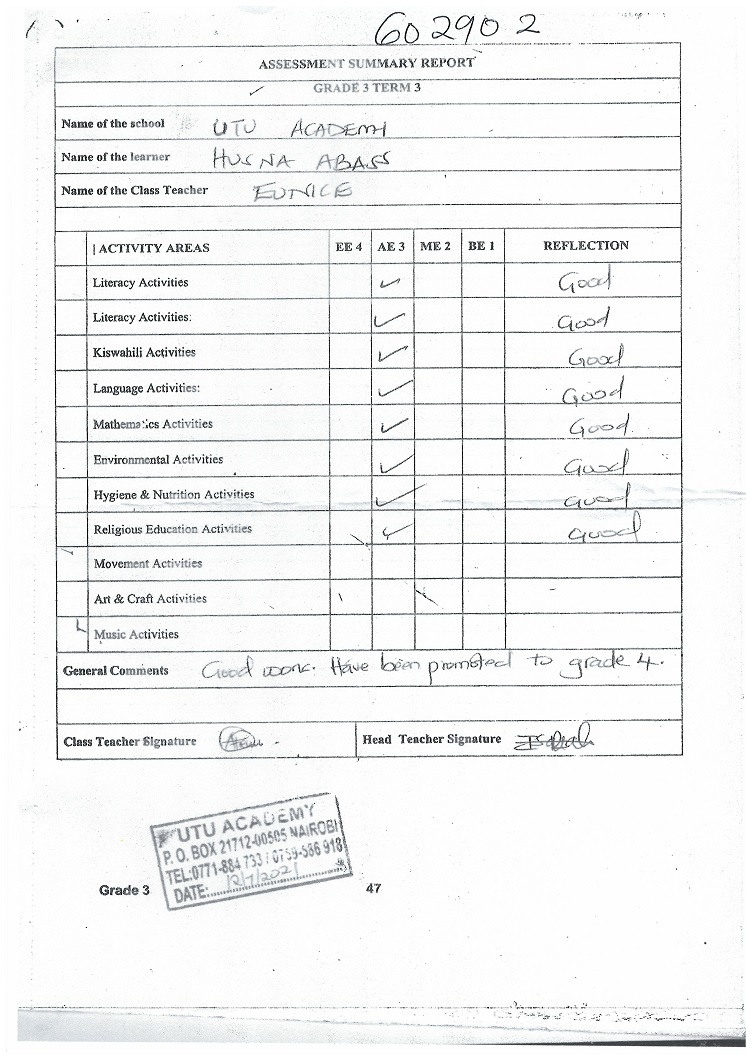 602902
ASSESSMENT SUMMARY REPORT
GRADE 3 TERM 3
Name of the school UTU ACADEMY
Name of the learner HUSNA ABASS
Name of the Class Teacher EUNICE
ACTIVITY AREAS EE 4 AE 3 ME 2 BE 1 REFLECTION
Literacy Activities ✓ Good
Literacy Activities: ✓ Good
Kiswahili Activities ✓ Good
Language Activities: ✓ Good
Mathematics Activities ✓ Good
Environmental Activities ✓ Good
Hygiene & Nutrition Activities ✓ Good
Religious Education Activities ✓ Good
Movement Activities
Art & Craft Activities
Music Activities
General Comments Good work. Have been promoted to grade 4.
Class Teacher Signature Head Teacher Signature
UTU ACADEMY
P. O. BOX 21712-00505 NAIROBI
TEL:0771-884 733 / 0759-586 918
DATE: 12/7/2021
Grade 3 47